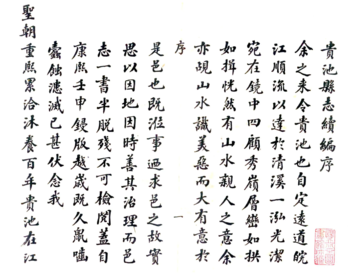 貴池縣志續編序
余之來令貴池也自定遠道皖
江順流以達於清溪一泓光潔
宛在鏡中四顧秀嶺層巒如拱
如揖恍然有山水親人之意余
亦覘山水識美惡而大有意於
序
一
是邑也既涖事迺求邑之故實
思以因地因時善其治理而邑
志一書半脫殘不可檢閱蓋自
康熙壬申鋟版越歲既久鼠囓
蠹蝕漶滅已甚伏念我
聖朝重熙累洽沐養百年貴池在江